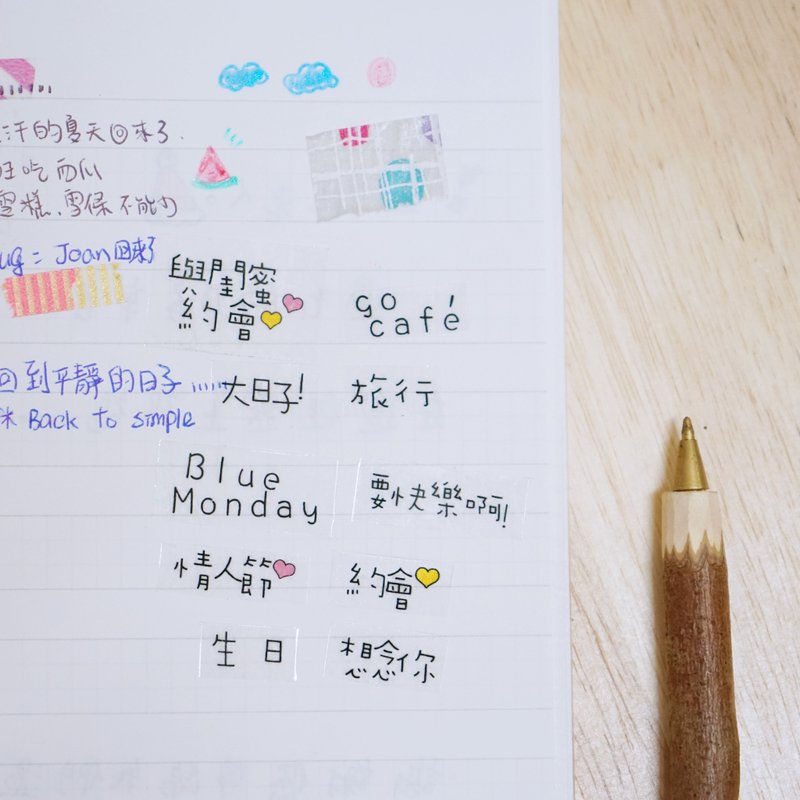 汗的夏天回來了.
吃西瓜
雪糕、雪條不能少
ug: Joan回來了
回到平靜的日子......
Back to simple
與閨蜜
約會
go
café
大日子!
旅行
Blue
Monday
要快樂啊!
情人節
約會
生日
想念你